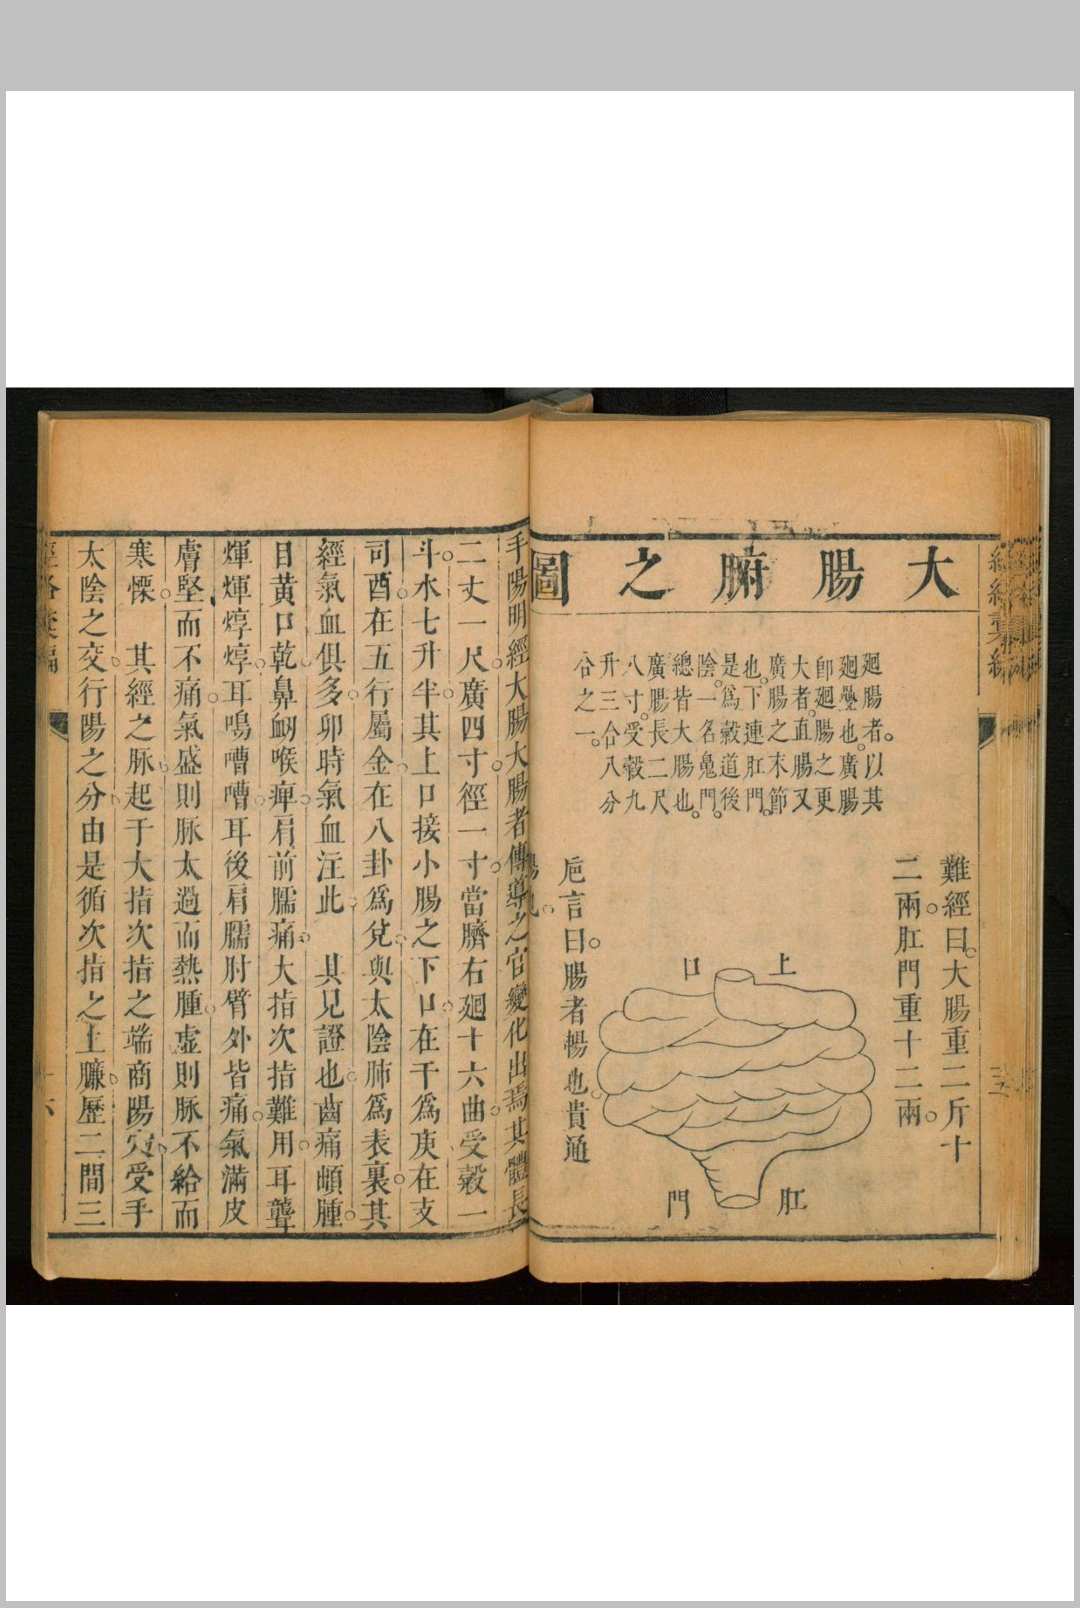 大腸腑之圖
難經曰大腸重二斤十
二兩肛門重十二兩
廻腸者以其
廻疊也廣腸
卽廻腸之更
大者直腸又
廣腸之末節
也下連肛門
是爲穀道後
陰一名鬼門
總皆大腸也
廣腸長二尺
八寸受穀九
升三合八分
合之一
上口
肛門
巵言曰腸者暢也貴通
手陽明經大腸大腸者傳導之官變化出焉其體長
二丈一尺廣四寸徑一寸當臍右廻十六曲受穀一
斗水七升半其上口接小腸之下口在干爲庚在支
司酉在五行屬金在八卦爲兌與太陰肺爲表裏其
經氣血俱多卯時氣血注此　其見證也齒痛䪼腫
目黃口乾鼻衂喉痺肩前臑痛大指次指難用耳聾
煇煇焞焞耳鳴嘈嘈耳後肩臑肘臂外皆痛氣滿皮
膚堅而不痛氣盛則脉太過而熱腫虛則脉不給而
寒慄　其經之脉起于大指次指之端商陽穴受手
太陰之交行陽之分由是循次指之上廉歷二間三